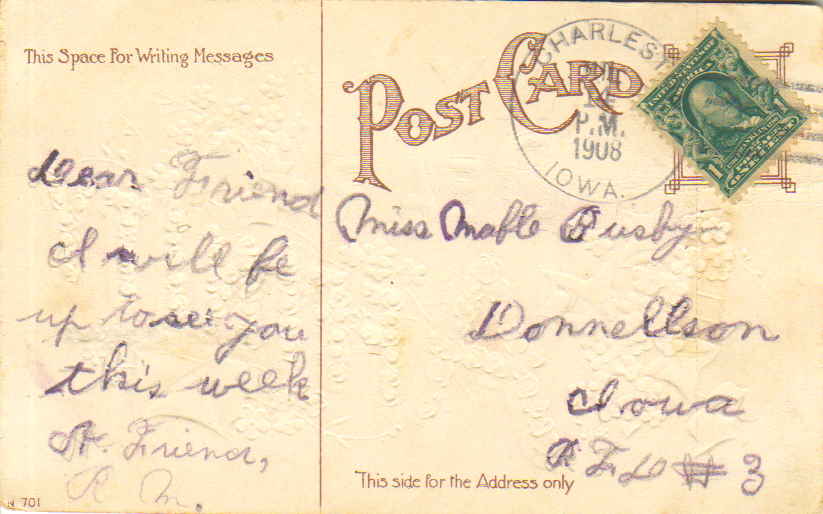 This Space For Writing Messages
POST CARD
CHARLEST
P.M.
1908
IOWA.
Dear Friend
I will be
up to see you
this week
A. Friend,
R M.
Miss Mable Busby
Donnellson
Iowa
R F D # 3
This side for the Address only
N 701